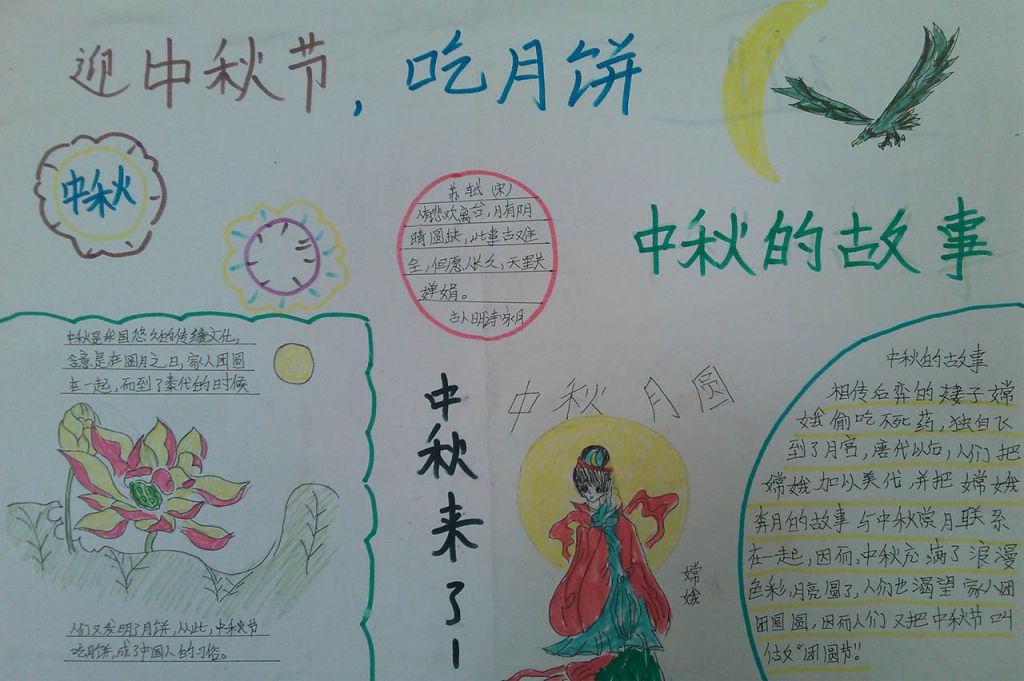 迎中秋节，吃月饼
中秋
苏轼（宋）
人有悲欢离合，月有阴
晴圆缺，此事古难
全，但愿人长久，天里共
婵娟。
古人明诗咏月
中秋的故事
中秋是我国悠久的传统文化，
含意是在圆月之日，家人团圆
在一起，而到了秦代的日时候
人们又发明了月饼，从此，中秋节
吃月饼，成了中国人的习俗。
中秋来了！
中秋月圆
嫦娥
中秋的故事
相传后弈的妻子嫦
娥偷吃不死药，独自飞
到了月宫，唐代以后，人们把
嫦娥加以美化，并把嫦娥
奔月的故事与中秋赏月联系
在一起，因而，中秋充满了浪漫
色彩，月亮圆了，人们也渴望家人团
团圆圆，因而人们又把中秋节叫
做“团圆节”。